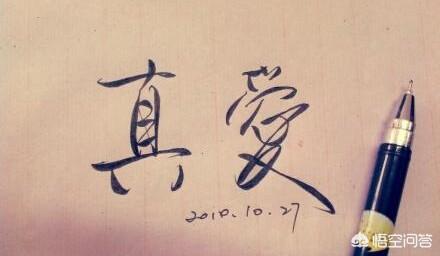 真愛
2010.10.27
悟空问答